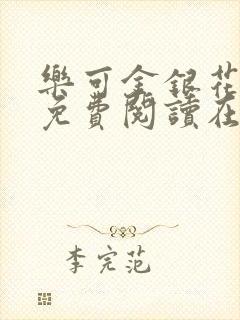 樂可金銀花
免費閱讀在
李完范